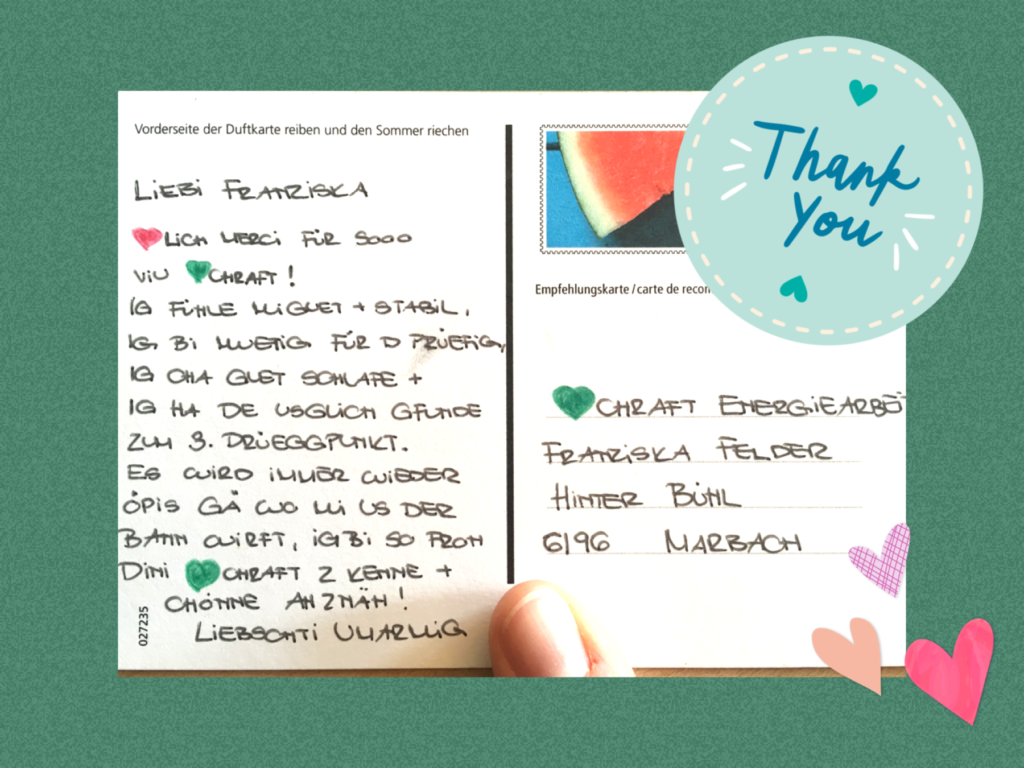 Vorderseite der Duftkarte reiben und den Sommer riechen
LIEBI FRANZISKA
♥LICH MERCI FÜR SOOO
VIU ♥CHRAFT!
IG FÜHLE MI GUET + STABIL,
IG BI MUETIG FÜR D PRÜEFIG,
IG CHA GUET SCHLAFE +
IG HA DE USGLICH GFUNDE
ZUM 3. DRÜEGGPUNKT.
ES WIRD IMMER WIEDER
ÖPIS GÄ WO MI US DER
BAHN WIRFT, IG BI SO FROH
DINI ♥CHRAFT Z KENNE +
CHÖNNE AHZNÄH!
LIEBSCHTI UMARMIG
027235
Thank
You
Empfehlungskarte / carte de recom
♥CHRAFT ENERGIEARBEIT
FRANZISKA FELDER
HINTER BÜHL
6196 MARBACH